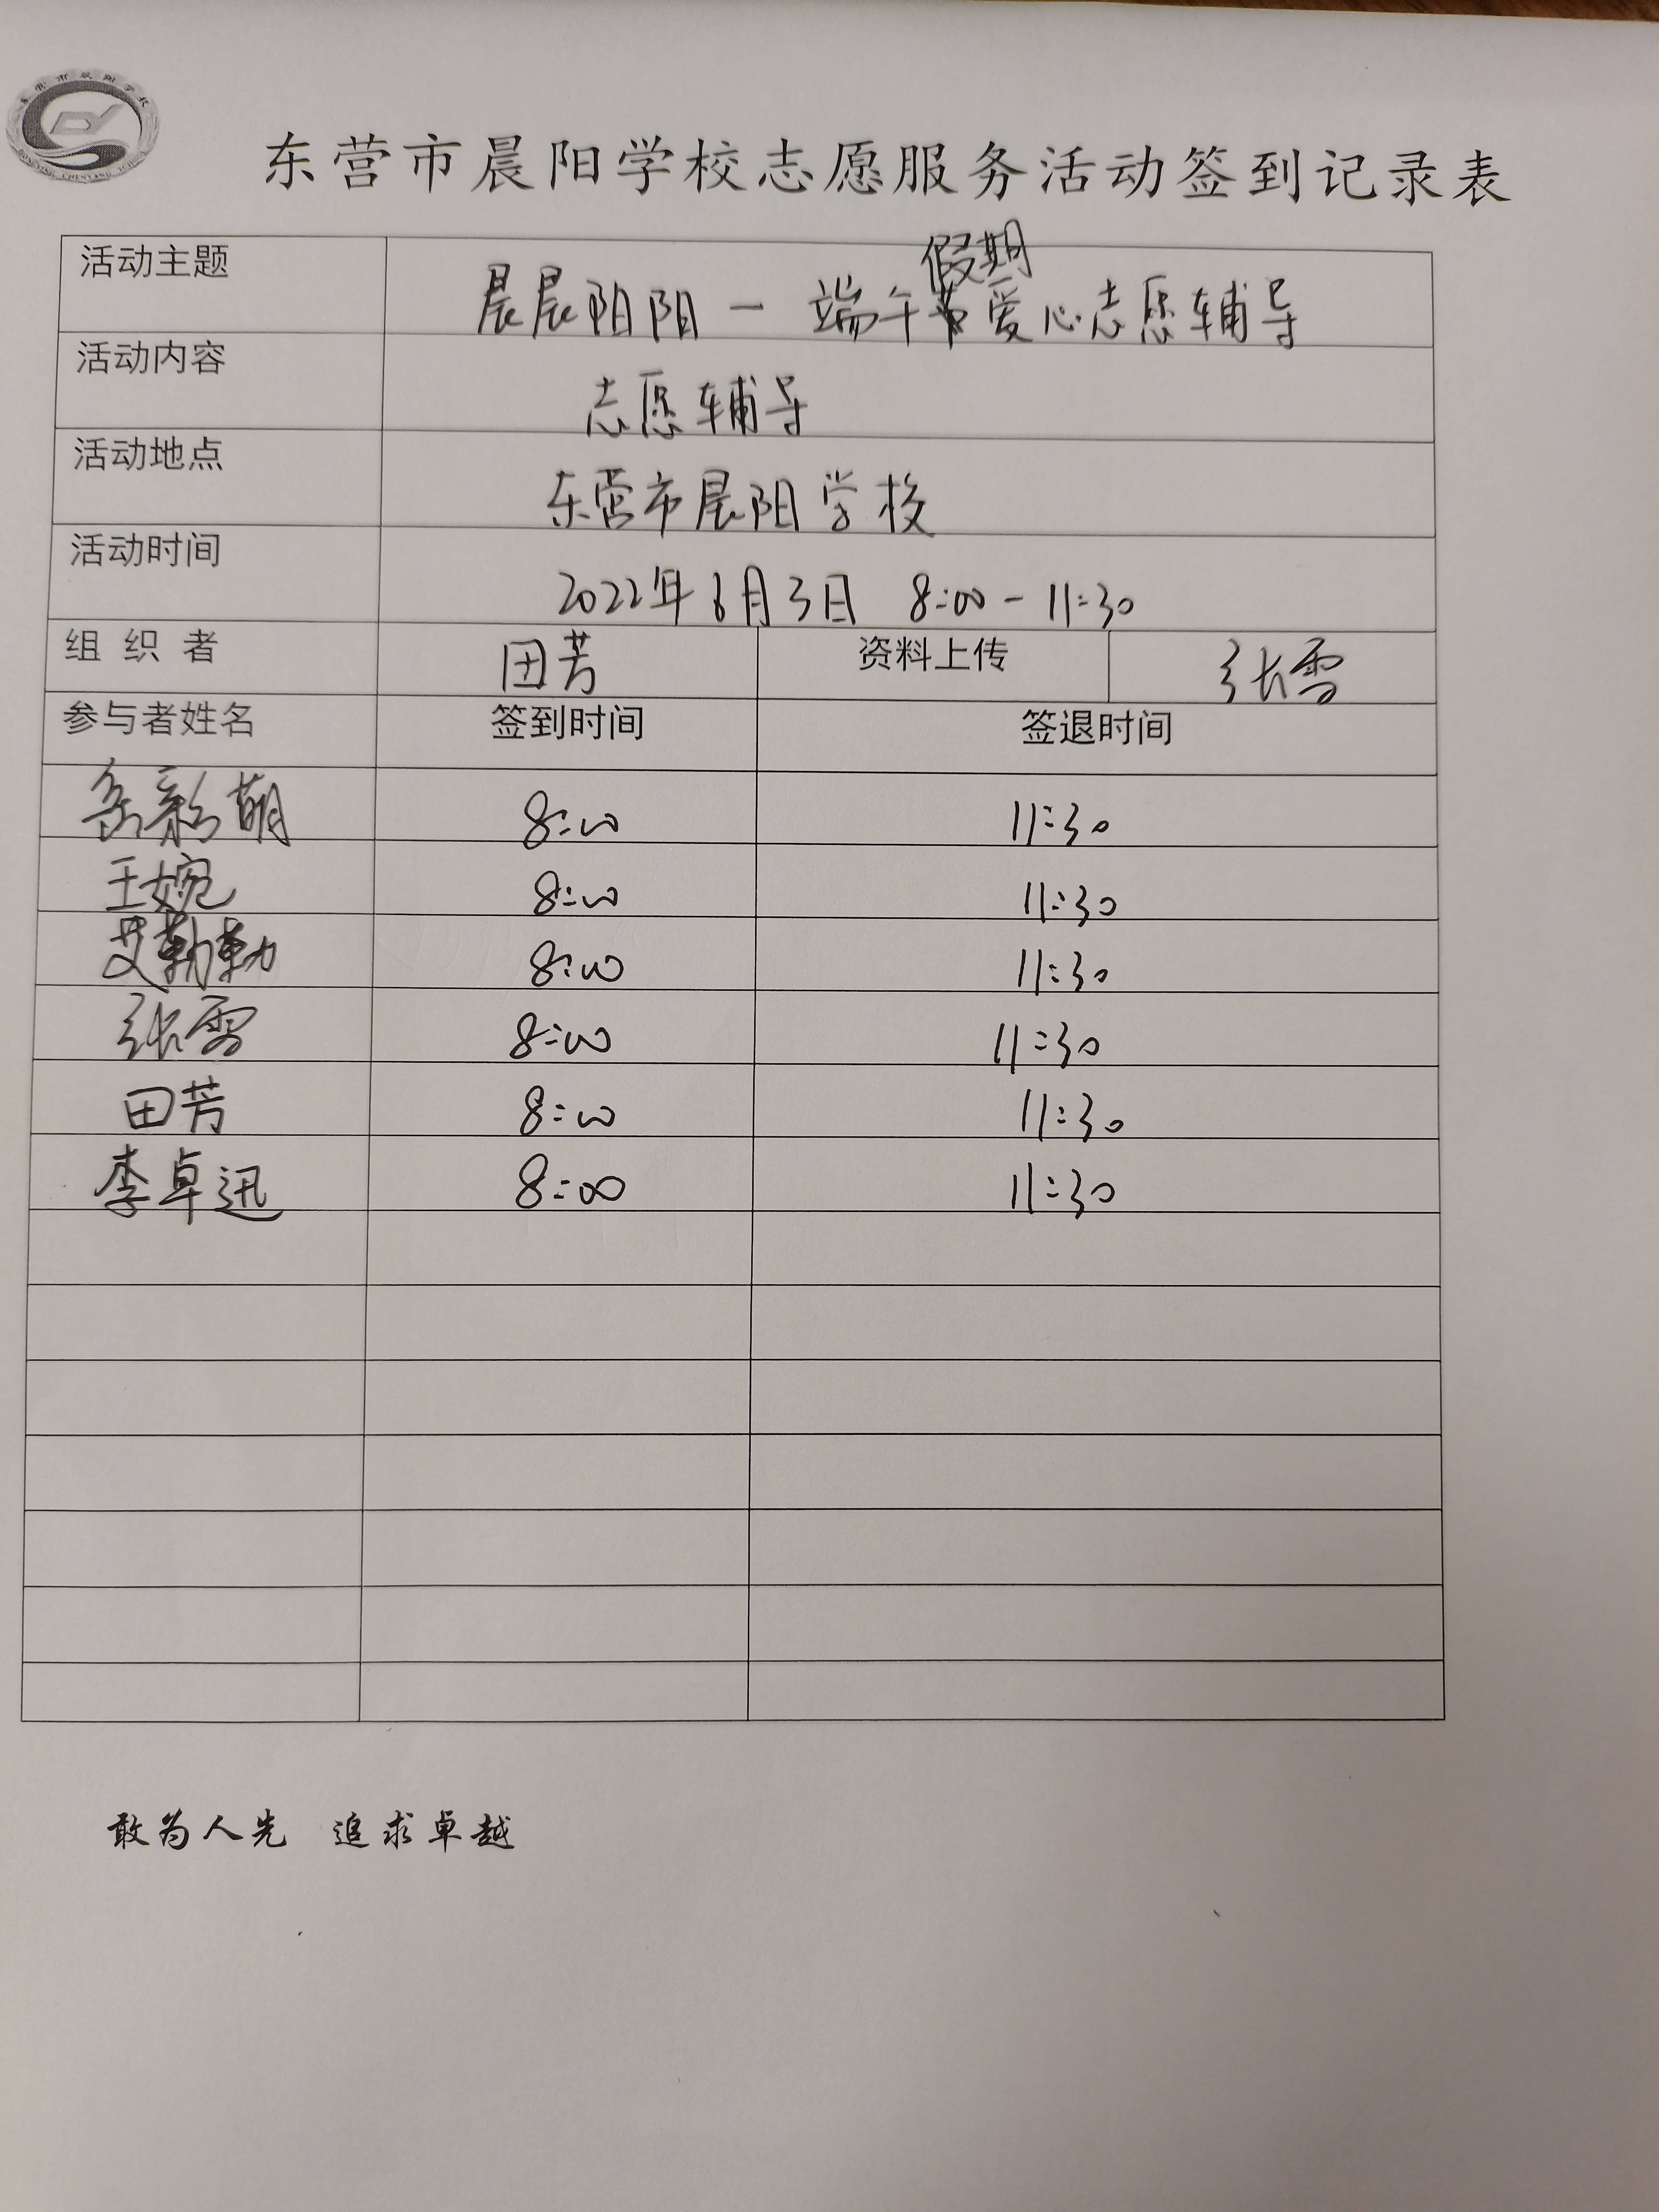 东营市晨阳学校
DONGYING CHENYANG SCHOOL
东营市晨阳学校志愿服务活动签到记录表
假期
活动主题 晨晨阳阳一端午爱心志愿辅导
活动内容 志愿辅导
活动地点 东营市晨阳学校
活动时间 2022年6月3日 8:00-11:30
组织者 田芳 资料上传 张雪
参与者姓名 签到时间 签退时间
岳彩萌 8:00 11:30
王婉 8:00 11:30
艾勤勤 8:00 11:30
张雪 8:00 11:30
田芳 8:00 11:30
李卓迅 8:00 11:30
敢为人先 追求卓越